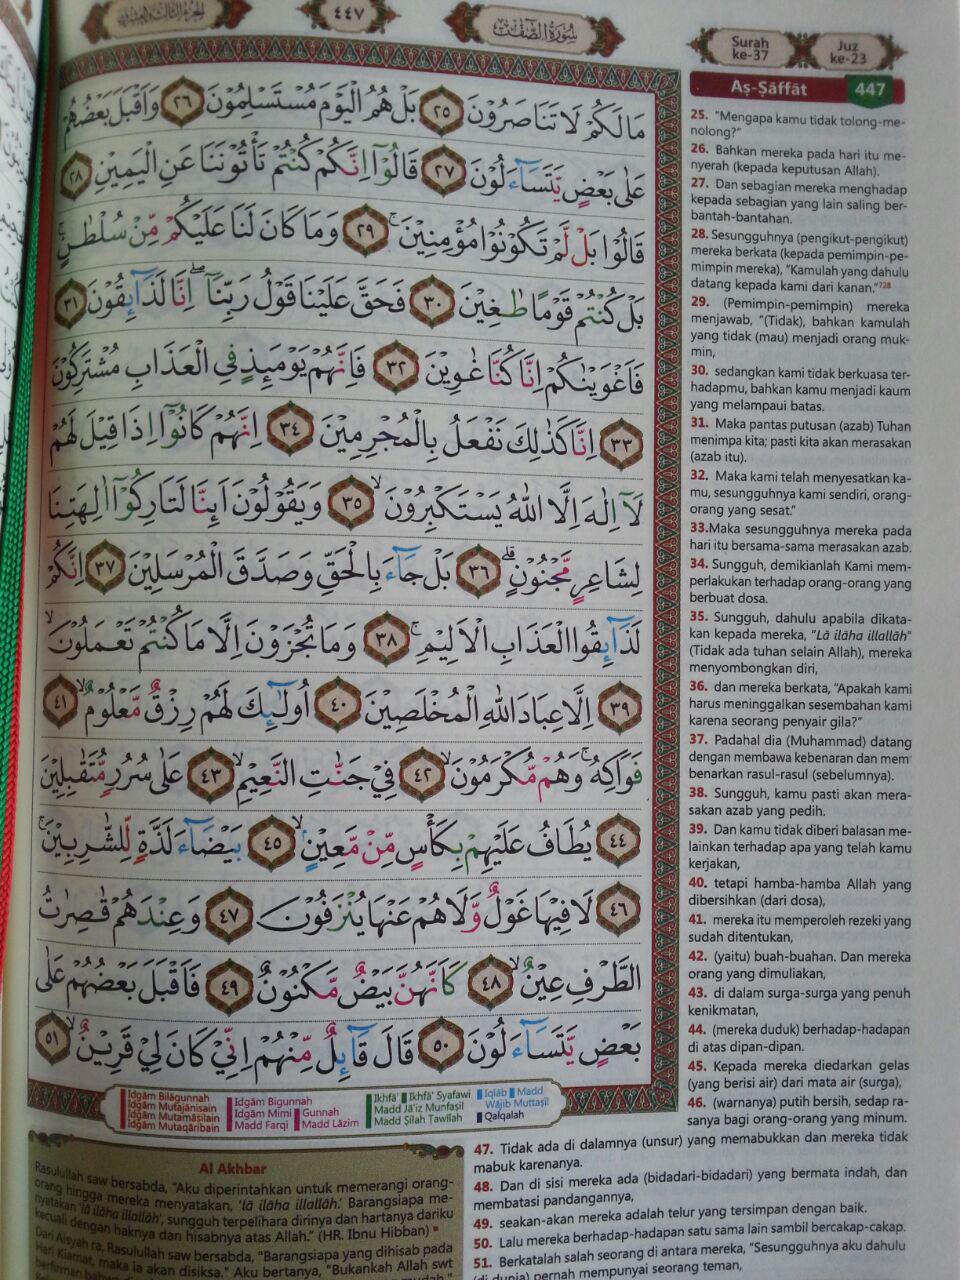 الجزء الثالث والعشرون
٤٤٧
سورة الصّٰفّٰت
Surah ke-37
Juz ke-23
Aṣ-Ṣāffāt 447
مَا لَكُمْ لَا تَنَاصَرُوْنَ ٢٥ بَلْ هُمُ الْيَوْمَ مُسْتَسْلِمُوْنَ ٢٦ وَاَقْبَلَ بَعْضُهُمْ
عَلٰى بَعْضٍ يَّتَسَاۤءَلُوْنَ ٢٧ قَالُوْٓا اِنَّكُمْ كُنْتُمْ تَأْتُوْنَنَا عَنِ الْيَمِيْنِ ٢٨
قَالُوْا بَلْ لَّمْ تَكُوْنُوْا مُؤْمِنِيْنَۚ ٢٩ وَمَا كَانَ لَنَا عَلَيْكُمْ مِّنْ سُلْطٰنٍۚ
بَلْ كُنْتُمْ قَوْمًا طٰغِيْنَ ٣٠ فَحَقَّ عَلَيْنَا قَوْلُ رَبِّنَآ ۖاِنَّا لَذَاۤىِٕقُوْنَ ٣١
فَاَغْوَيْنٰكُمْ اِنَّا كُنَّا غٰوِيْنَ ٣٢ فَاِنَّهُمْ يَوْمَىِٕذٍ فِى الْعَذَابِ مُشْتَرِكُوْنَ
٣٣ اِنَّا كَذٰلِكَ نَفْعَلُ بِالْمُجْرِمِيْنَ ٣٤ اِنَّهُمْ كَانُوْٓا اِذَا قِيْلَ لَهُمْ
لَآ اِلٰهَ اِلَّا اللّٰهُ يَسْتَكْبِرُوْنَۙ ٣٥ وَيَقُوْلُوْنَ اَىِٕنَّا لَتَارِكُوْٓا اٰلِهَتِنَا
لِشَاعِرٍ مَّجْنُوْنٍۗ ٣٦ بَلْ جَاۤءَ بِالْحَقِّ وَصَدَّقَ الْمُرْسَلِيْنَ ٣٧ اِنَّكُمْ
لَذَاۤىِٕقُوا الْعَذَابِ الْاَلِيْمِۚ ٣٨ وَمَا تُجْزَوْنَ اِلَّا مَا كُنْتُمْ تَعْمَلُوْنَۙ
٣٩ اِلَّا عِبَادَ اللّٰهِ الْمُخْلَصِيْنَ ٤٠ اُولٰۤىِٕكَ لَهُمْ رِزْقٌ مَّعْلُوْمٌۙ ٤١
فَوَاكِهُ ۚوَهُمْ مُّكْرَمُوْنَۙ ٤٢ فِيْ جَنّٰتِ النَّعِيْمِۙ ٤٣ عَلٰى سُرُرٍ مُّتَقٰبِلِيْنَ
٤٤ يُطَافُ عَلَيْهِمْ بِكَأْسٍ مِّنْ مَّعِيْنٍۙ ٤٥ بَيْضَاۤءَ لَذَّةٍ لِّلشّٰرِبِيْنَۚ
٤٦ لَا فِيْهَا غَوْلٌ وَّلَا هُمْ عَنْهَا يُنْزَفُوْنَ ٤٧ وَعِنْدَهُمْ قٰصِرٰتُ
الطَّرْفِ عِيْنٌۙ ٤٨ كَاَنَّهُنَّ بَيْضٌ مَّكْنُوْنٌ ٤٩ فَاَقْبَلَ بَعْضُهُمْ عَلٰى
بَعْضٍ يَّتَسَاۤءَلُوْنَ ٥٠ قَالَ قَاۤىِٕلٌ مِّنْهُمْ اِنِّيْ كَانَ لِيْ قَرِيْنٌۙ ٥١
25. "Mengapa kamu tidak tolong-me-
nolong?"
26. Bahkan mereka pada hari itu me-
nyerah (kepada keputusan Allah).
27. Dan sebagian mereka menghadap
kepada sebagian yang lain saling ber-
bantah-bantahan.
28. Sesungguhnya (pengikut-pengikut)
mereka berkata (kepada pemimpin-pe-
mimpin mereka), "Kamulah yang dahulu
datang kepada kami dari kanan."⁷²⁸
29. (Pemimpin-pemimpin) mereka
menjawab, "(Tidak), bahkan kamulah
yang tidak (mau) menjadi orang muk-
min,
30. sedangkan kami tidak berkuasa ter-
hadapmu, bahkan kamu menjadi kaum
yang melampaui batas.
31. Maka pantas putusan (azab) Tuhan
menimpa kita; pasti kita akan merasakan
(azab itu).
32. Maka kami telah menyesatkan ka-
mu, sesungguhnya kami sendiri, orang-
orang yang sesat."
33.Maka sesungguhnya mereka pada
hari itu bersama-sama merasakan azab.
34. Sungguh, demikianlah Kami mem-
perlakukan terhadap orang-orang yang
berbuat dosa.
35. Sungguh, dahulu apabila dikata-
kan kepada mereka, "Lā ilāha illallāh"
(Tidak ada tuhan selain Allah), mereka
menyombongkan diri,
36. dan mereka berkata, "Apakah kami
harus meninggalkan sesembahan kami
karena seorang penyair gila?"
37. Padahal dia (Muhammad) datang
dengan membawa kebenaran dan mem
benarkan rasul-rasul (sebelumnya).
38. Sungguh, kamu pasti akan mera-
sakan azab yang pedih.
39. Dan kamu tidak diberi balasan me-
lainkan terhadap apa yang telah kamu
kerjakan,
40. tetapi hamba-hamba Allah yang
dibersihkan (dari dosa),
41. mereka itu memperoleh rezeki yang
sudah ditentukan,
42. (yaitu) buah-buahan. Dan mereka
orang yang dimuliakan,
43. di dalam surga-surga yang penuh
kenikmatan,
44. (mereka duduk) berhadap-hadapan
di atas dipan-dipan.
45. Kepada mereka diedarkan gelas
(yang berisi air) dari mata air (surga),
46. (warnanya) putih bersih, sedap ra-
sanya bagi orang-orang yang minum.
47. Tidak ada di dalamnya (unsur) yang memabukkan dan mereka tidak
mabuk karenanya.
48. Dan di sisi mereka ada (bidadari-bidadari) yang bermata indah, dan
membatasi pandangannya,
49. seakan-akan mereka adalah telur yang tersimpan dengan baik.
50. Lalu mereka berhadap-hadapan satu sama lain sambil bercakap-cakap.
51. Berkatalah salah seorang di antara mereka, "Sesungguhnya aku dahulu
(di dunia) pernah mempunyai seorang teman,
Idgām Bilāgunnah
Idgām Mutajānisain
Idgām Mutamāṡilain
Idgām Mutaqāribain
Idgām Bigunnah
Idgām Mimi Gunnah
Madd Farqi Madd Lāzim
Ikhfā' Ikhfā' Syafawi
Madd Jā'iz Munfaṣil
Madd Ṣilah Ṭawīlah
Iqlāb Madd
Wājib Muttaṣil
Qalqalah
Al Akhbar
Rasulullah saw bersabda, "Aku diperintahkan untuk memerangi orang-
orang hingga mereka menyatakan, 'lā ilāha illallāh.' Barangsiapa me-
nyatakan 'lā ilāha illallāh', sungguh terpelihara dirinya dan hartanya dariku
kecuali dengan haknya dan hisabnya atas Allah." (HR. Ibnu Hibban)
Dari Aisyah ra, Rasulullah saw bersabda, "Barangsiapa yang dihisab pada
Hari Kiamat, maka ia akan disiksa." Aku bertanya, "Bukankah Allah swt